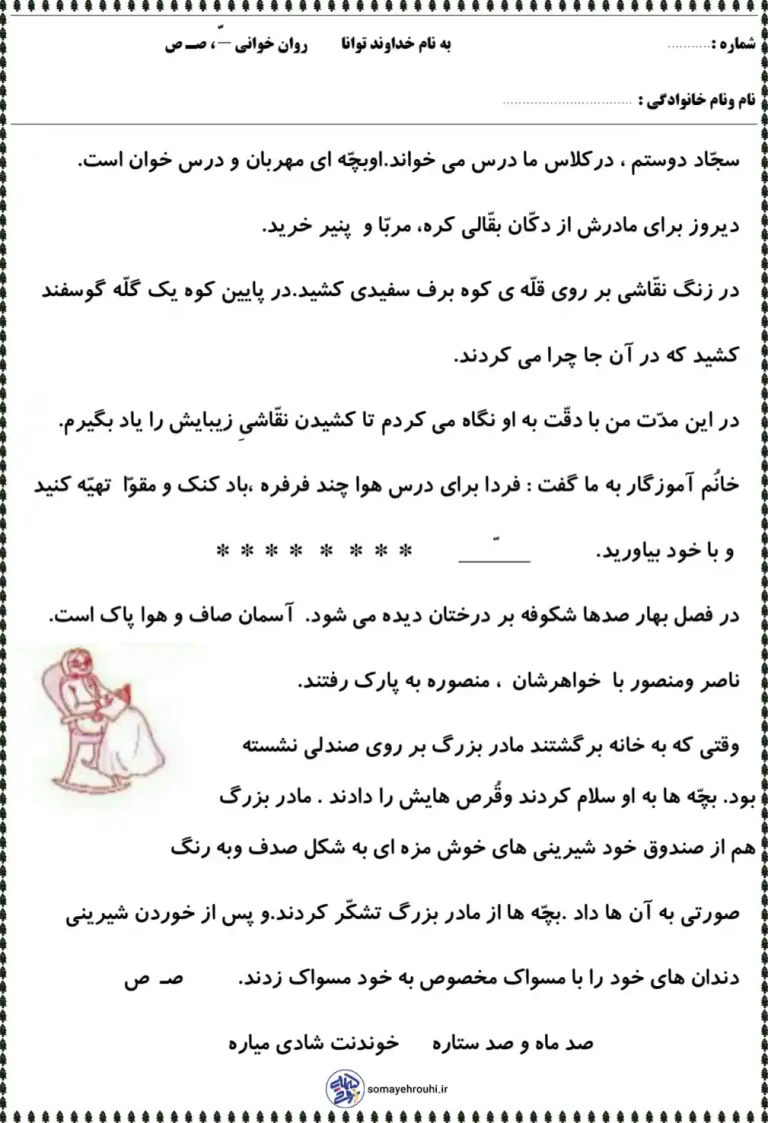 شماره :........... به نام خداوند توانا روان خوانی ــّ ، صـ ص
نام ونام خانوادگی : ................................
سجّاد دوستم ، درکلاس ما درس می خواند.اوبچّه ای مهربان و درس خوان است.
دیروز برای مادرش از دکّان بقّالی کره، مربّا و پنیر خرید.
در زنگ نقّاشی بر روی قلّه ی کوه برف سفیدی کشید.در پایین کوه یک گلّه گوسفند
کشید که در آن جا چرا می کردند.
در این مدّت من با دقّت به او نگاه می کردم تا کشیدن نقّاشیِ زیبایش را یاد بگیرم.
خانُم آموزگار به ما گفت : فردا برای درس هوا چند فرفره ،باد کنک و مقوّا تهیّه کنید
و با خود بیاورید. ــّ * * * * * * * *
در فصل بهار صدها شکوفه بر درختان دیده می شود. آسمان صاف و هوا پاک است.
ناصر ومنصور با خواهرشان ، منصوره به پارک رفتند.
وقتی که به خانه برگشتند مادر بزرگ بر روی صندلی نشسته
بود. بچّه ها به او سلام کردند وقُرص هایش را دادند . مادر بزرگ
هم از صندوق خود شیرینی های خوش مزه ای به شکل صدف وبه رنگ
صورتی به آن ها داد .بچّه ها از مادر بزرگ تشکّر کردند.و پس از خوردن شیرینی
دندان های خود را با مسواک مخصوص به خود مسواک زدند. صـ ص
صد ماه و صد ستاره خوندنت شادی میاره
somayehrouhi.ir